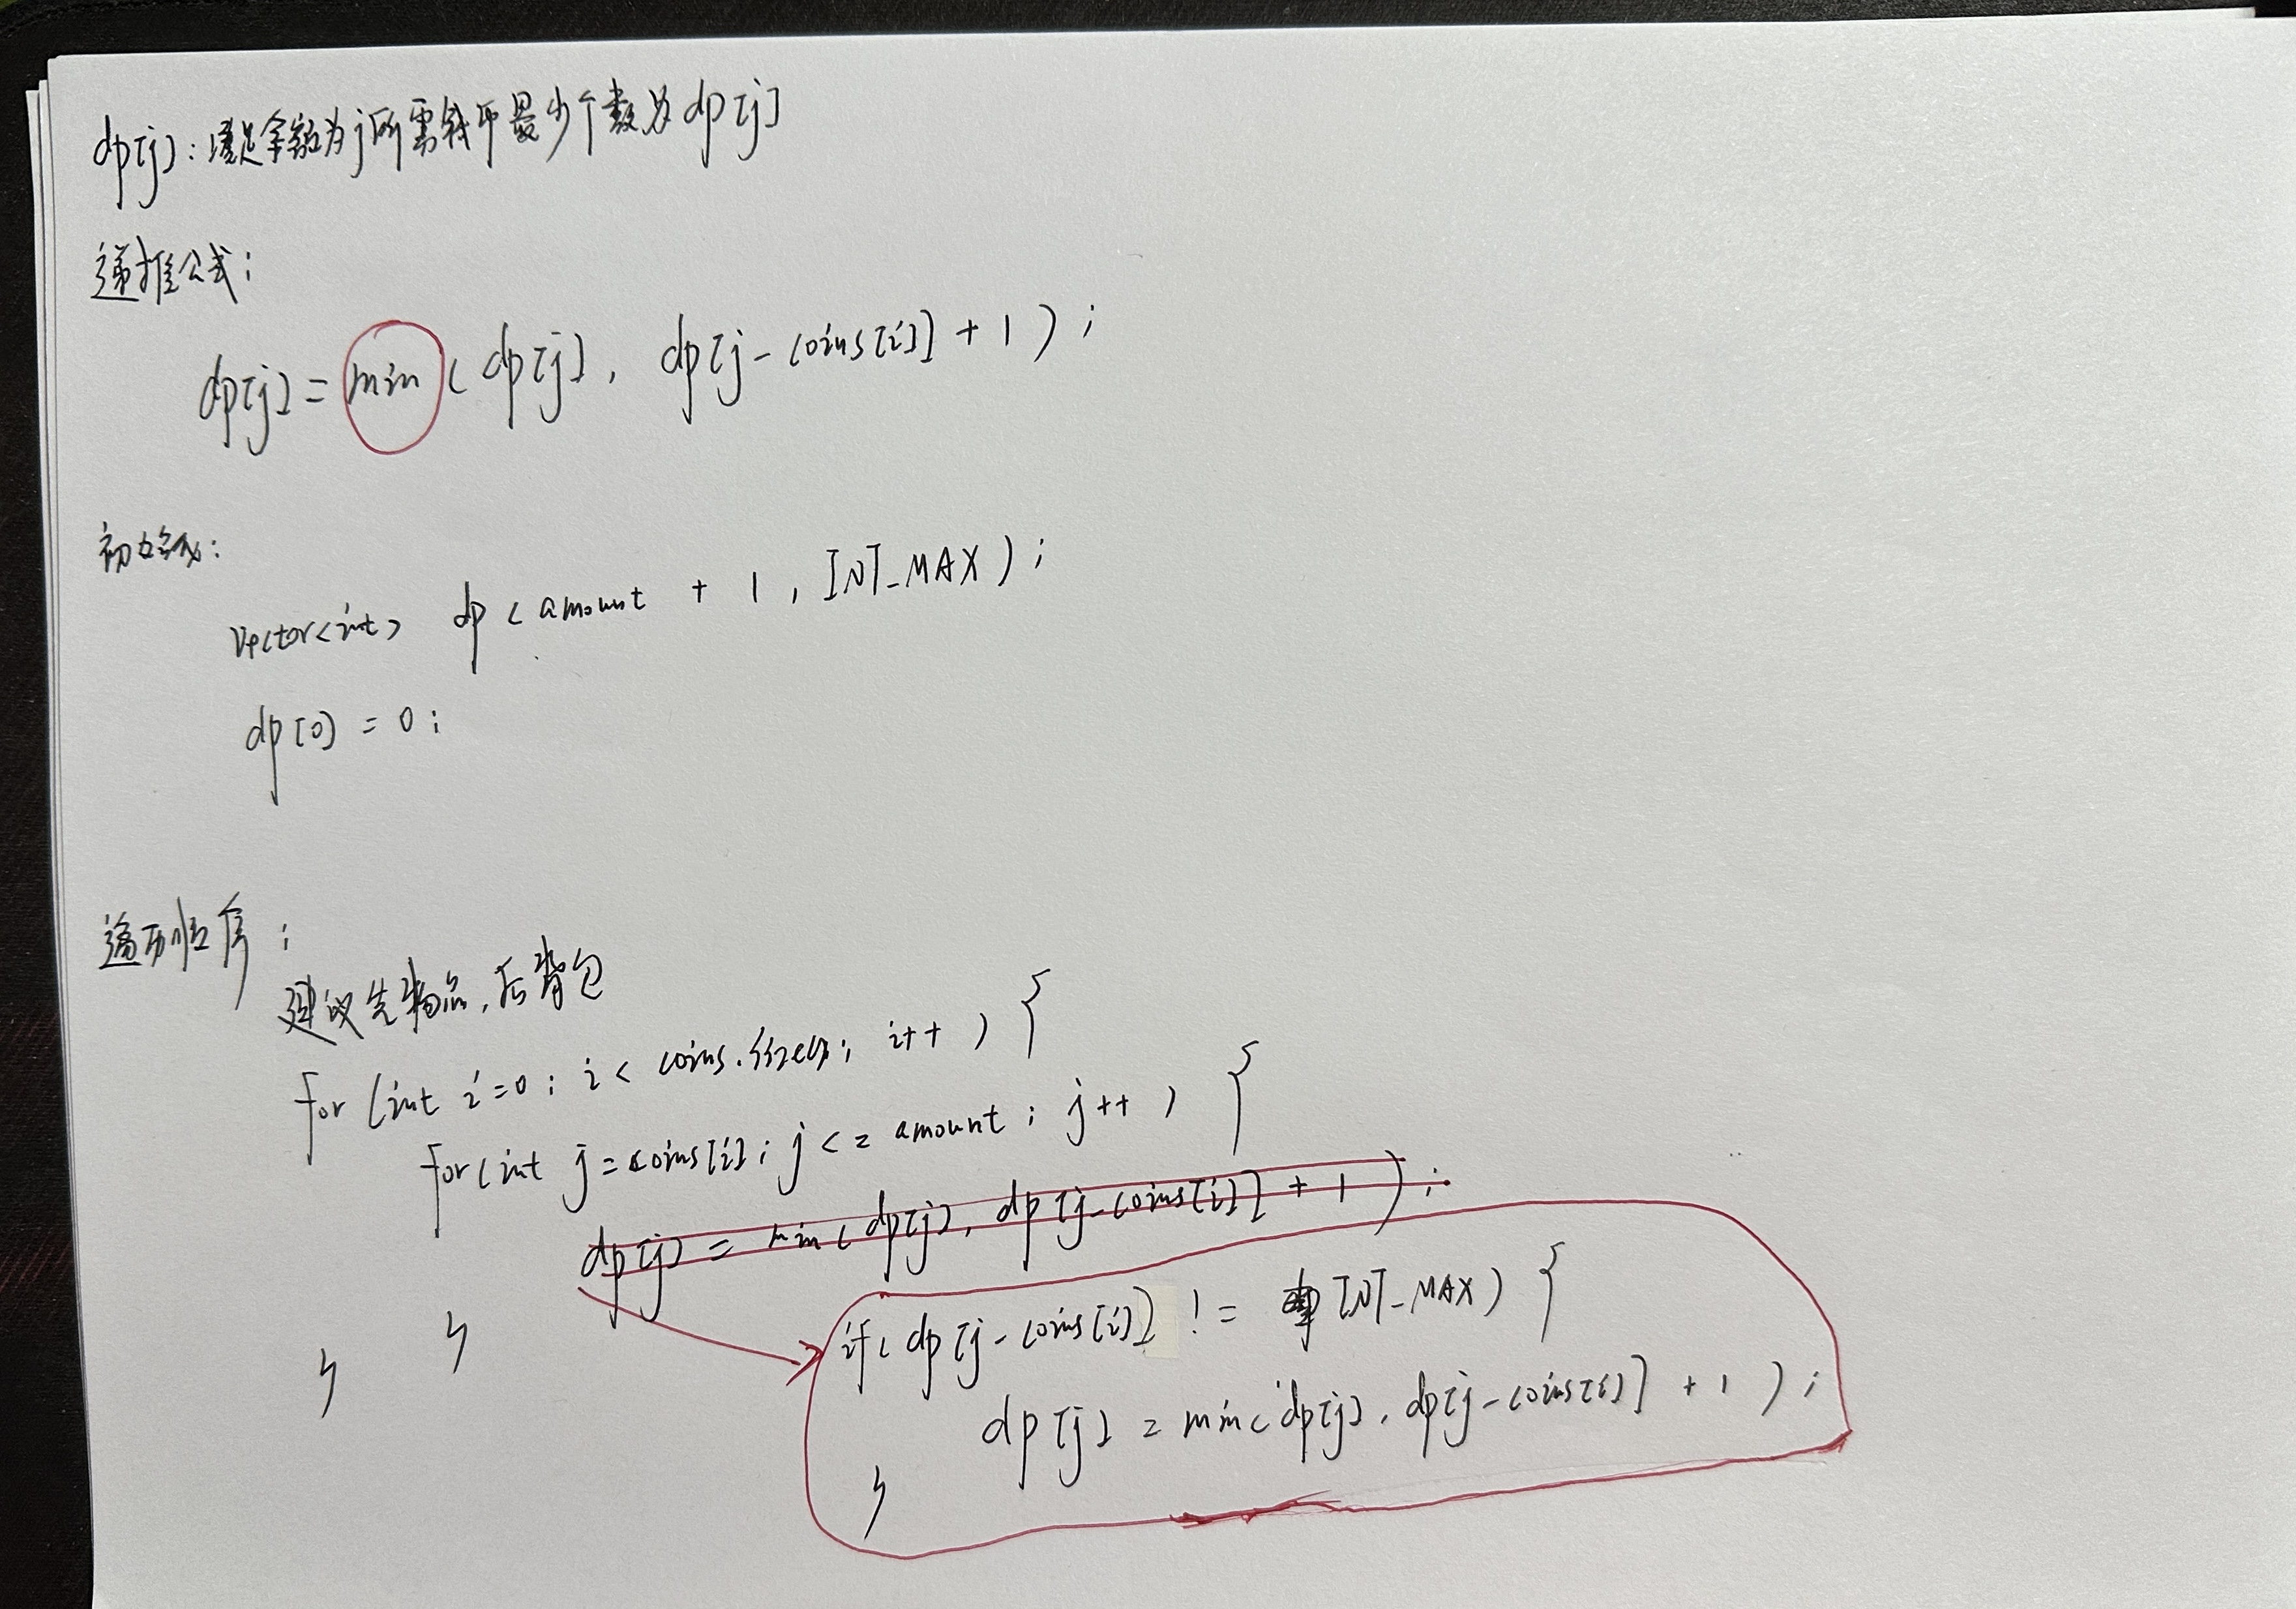 dp[j]：凑足金额为j所需钱币最少个数为dp[j]
递推公式：
dp[j] = min(dp[j], dp[j-coins[i]] + 1);
初始化：
vector<int> dp(amount + 1, INT_MAX);
dp[0] = 0;
遍历顺序：
建议先物品，后背包
for(int i=0; i< coins.size(); i++) {
for(int j=coins[i]; j<= amount; j++) {
dp[j] = min(dp[j], dp[j-coins[i]] + 1);
if(dp[j-coins[i]] != INT_MAX) {
dp[j] = min(dp[j], dp[j-coins[i]] + 1);
}
}
}